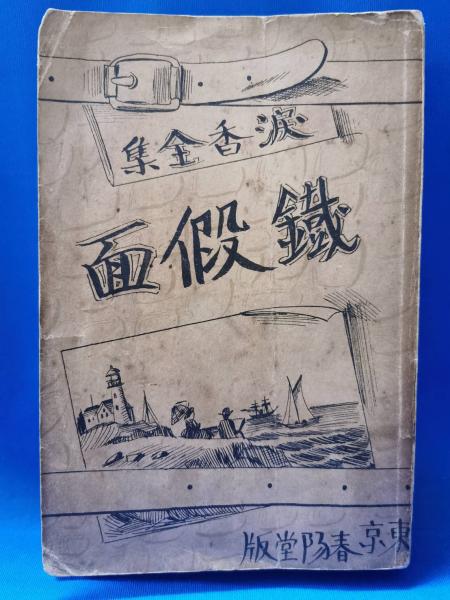 涙香全集
鐵假面
東京春陽堂版